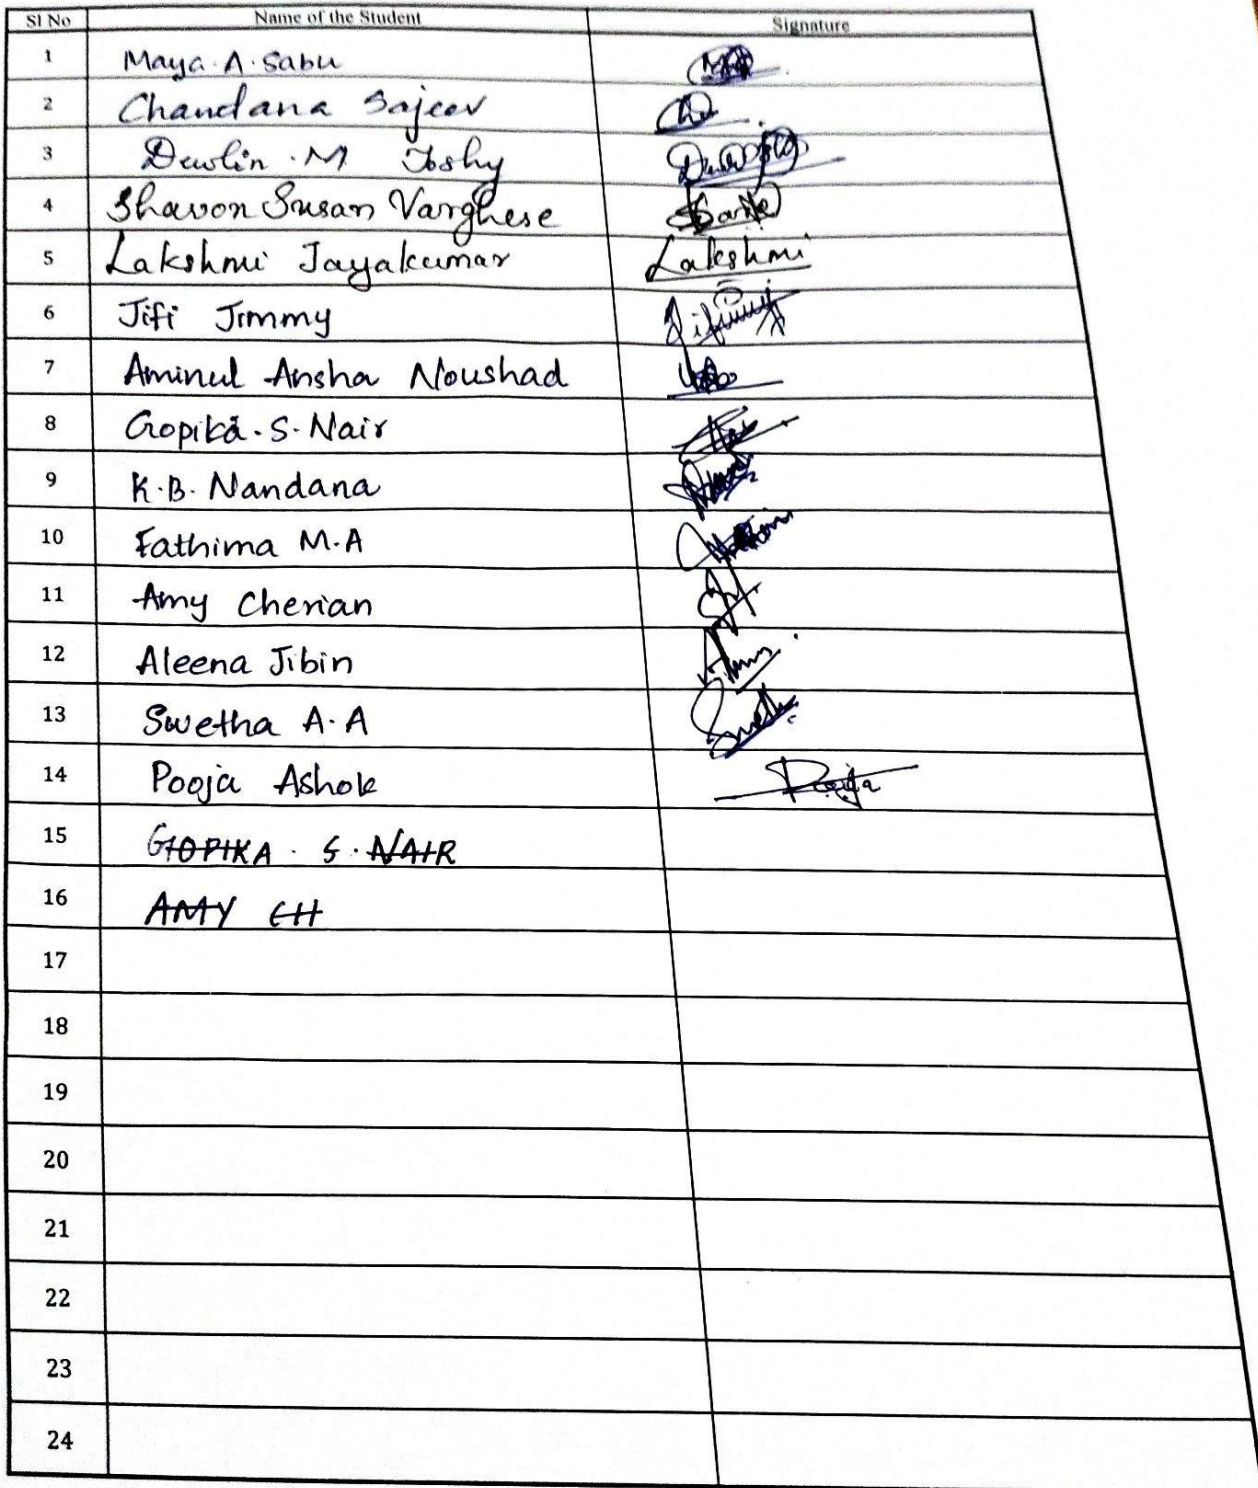 Sl No Name of the Student Signature
1 Maya.A.Sabu
2 Chandana Sajeev
3 Dewlin.M Joshy
4 Sharon Susan Varghese
5 Lakshmi Jayakumar Lakshmi
6 Jifi Jimmy
7 Aminul Ansha Noushad
8 Gopika.S.Nair
9 K.B. Nandana
10 Fathima M.A
11 Amy Cherian
12 Aleena Jibin
13 Swetha A.A
14 Pooja Ashok Pooja
15 GOPIKA. S. NAIR
16 AMY CH
17
18
19
20
21
22
23
24